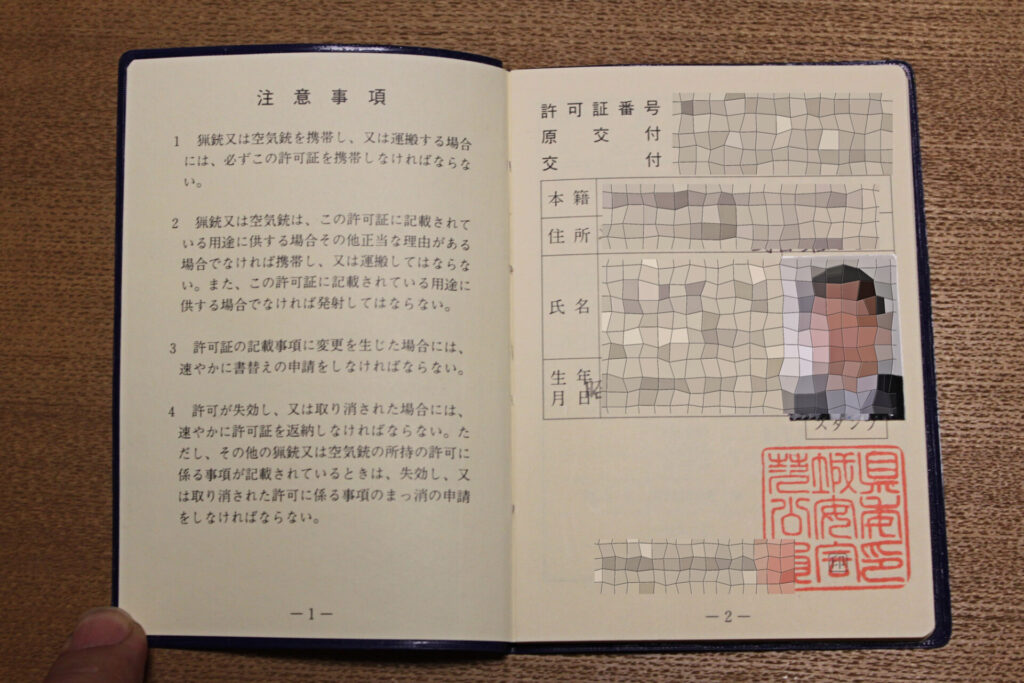 注意事項
1 猟銃又は空気銃を携帯し、又は運搬する場合
には、必ずこの許可証を携帯しなければならな
い。
2 猟銃又は空気銃は、この許可証に記載されて
いる用途に供する場合その他正当な理由がある
場合でなければ携帯し、又は運搬してはならな
い。また、この許可証に記載されている用途に
供する場合でなければ発射してはならない。
3 許可証の記載事項に変更を生じた場合には、
速やかに書替えの申請をしなければならない。
4 許可が失効し、又は取り消された場合には、
速やかに許可証を返納しなければならない。た
だし、その他の猟銃又は空気銃の所持の許可に
係る事項が記載されているときは、失効し、又
は取り消された許可に係る事項のまっ消の申請
をしなければならない。
―1―
許可証番号
原交付
交付
本籍
住所
氏名
生年
月日
スタンプ
印
―2―